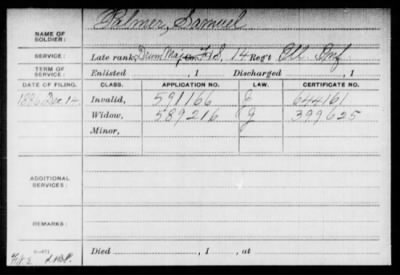 Palmer, Samuel
NAME OF
SOLDIER:
SERVICE: Late rank, Drum Major F&S, 14 Reg't Ill. Inf
TERM OF
SERVICE: Enlisted , 1 Discharged , 1
DATE OF FILING. CLASS. APPLICATION NO. LAW. CERTIFICATE NO.
1886 Dec. 14, Invalid, 591166 644161
Widow, 589216 G 399625
Minor,
ADDITIONAL
SERVICES:
REMARKS:
Died , 1 , at